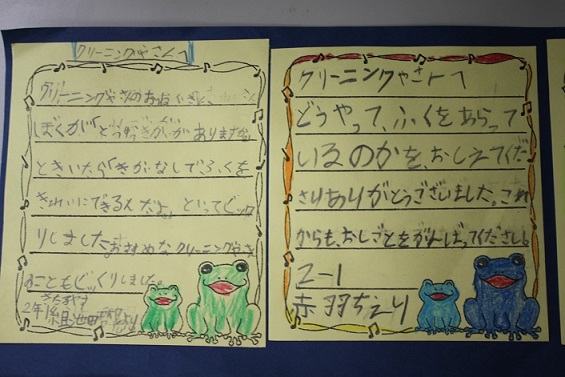 クリーニングやさんへ
クリーニングやさんのおばさん、
ぼくが「どう
ありますか。
ときいたら「きかいなしで、ふくを
きれいにできるんだよ。」といってビック
リしました。おすすめな クリーニングやさ
こともビックリしました。
2年1組 池田
クリーニングやさんへ
どうやって、ふくをあらって
いるのかを、おしえてくだ
さりありがとうございました。これ
からも、おしごとをがんばってください。
2-1
赤羽ちえり